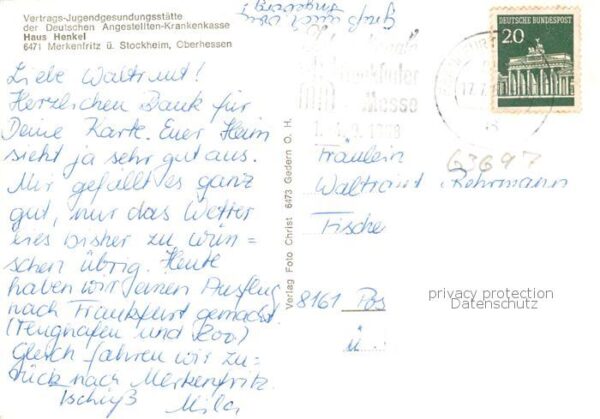 Vertrags-Jugendgesundungsstätte
der Deutschen Angestellten-Krankenkasse
Haus Henkel
6471 Merkenfritz ü. Stockheim, Oberhessen
Liebe Waltraut!
Herzlichen Dank für
Deine Karte. Euer Heim
sieht ja sehr gut aus.
Mir gefällt es ganz
gut, nur das Wetter
lies bisher zu wün=
schen übrig. Heute
haben wir einen Ausflug
nach Frankfurt gemacht.
(Flughafen und Zoo)
Gleich fahren wir zu=
rück nach Merkenfritz.
Tschüß
Verlag Foto Christ 6473 Gedern O. H.
DEUTSCHE BUNDESPOST
20
Frankfurter
Messe
Fräulein
Waltraut Rehrmann
Tische
8161
privacy protection
Datenschutz
63697